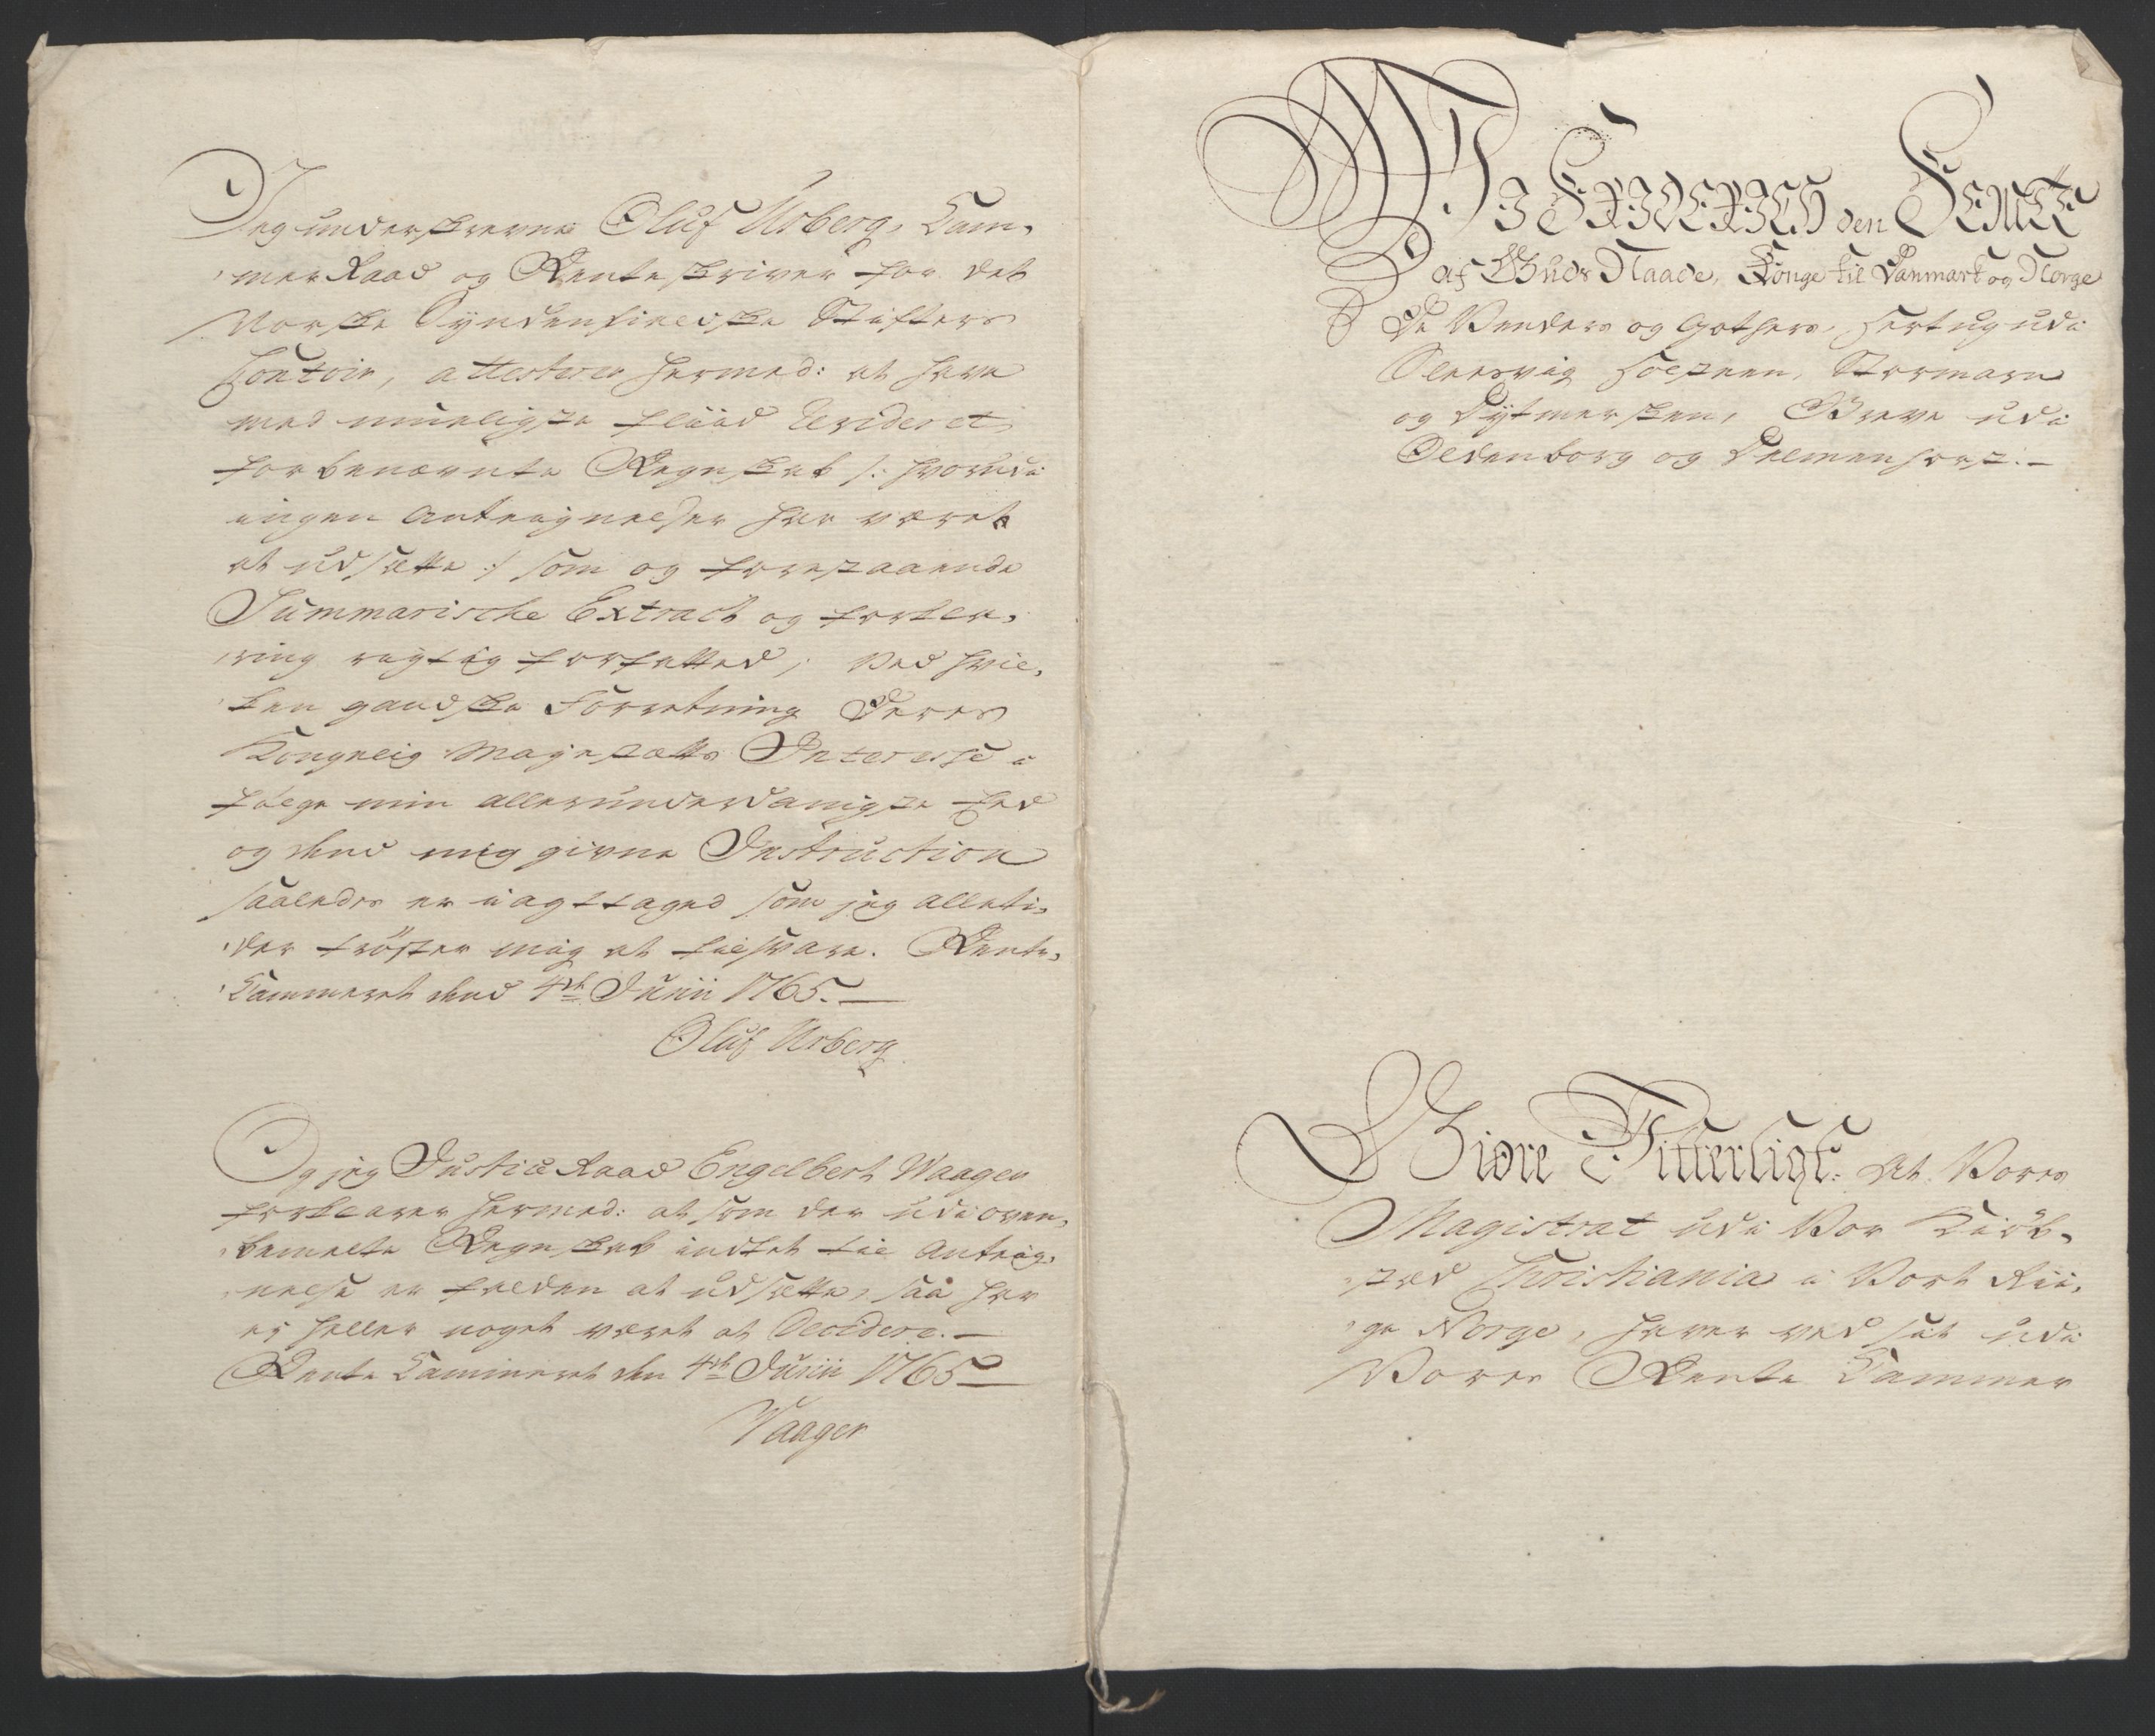 Jeg underskrevne Oluf Urberg, Cam-
mer Raad og Renteskriver for det
Norske Syndenfieldske Stifters
Contoir, attesterer hermed: at have
med mueligste Fliid Revideret
forbenævnte Regnskab /: hvorudi
ingen Antegnelser har været
at udsætte :/ som og forestaaende
Summarische Extract og Forkla-
ring rigtig forfatted; Ved hvil-
ken gandske Forretning Deres
Kongelig Majestætts Interesse i
følge min allerunderdanigste Eed
og dend mig givne Instruction
saaledes er iagttaged som jeg alleti-
der trøster mig at tilsvare. Rente-
Cammeret dend 4de Junii 1765.
Oluf Urberg
Og jeg Justice Raad Engelbert Waagen
forklarer hermed: at som der udi oven-
bemelte Regnskab indtet til Anteig-
nelse er falden at udsætte, saa har
ej heller noget været at Decidere.
Rente Cammeret den 4de Junii 1765
Waagen
WJ FRIDERICH den FEMTE
af Guds Naade, Konge til Danmark og Norge
De Venders og Gothers, Hertug udi
Slesvig Holsteen, Stormarn
og Dytmersken, Greve udi
Oldenborg og Delmenhorst.
Giøre Vitterligt: At Vores
Magistrat udi Vor Kiøb-
sted Christiania i Vort Rii-
ge Norge, haver ved sat udi
Vores Rente Cammer